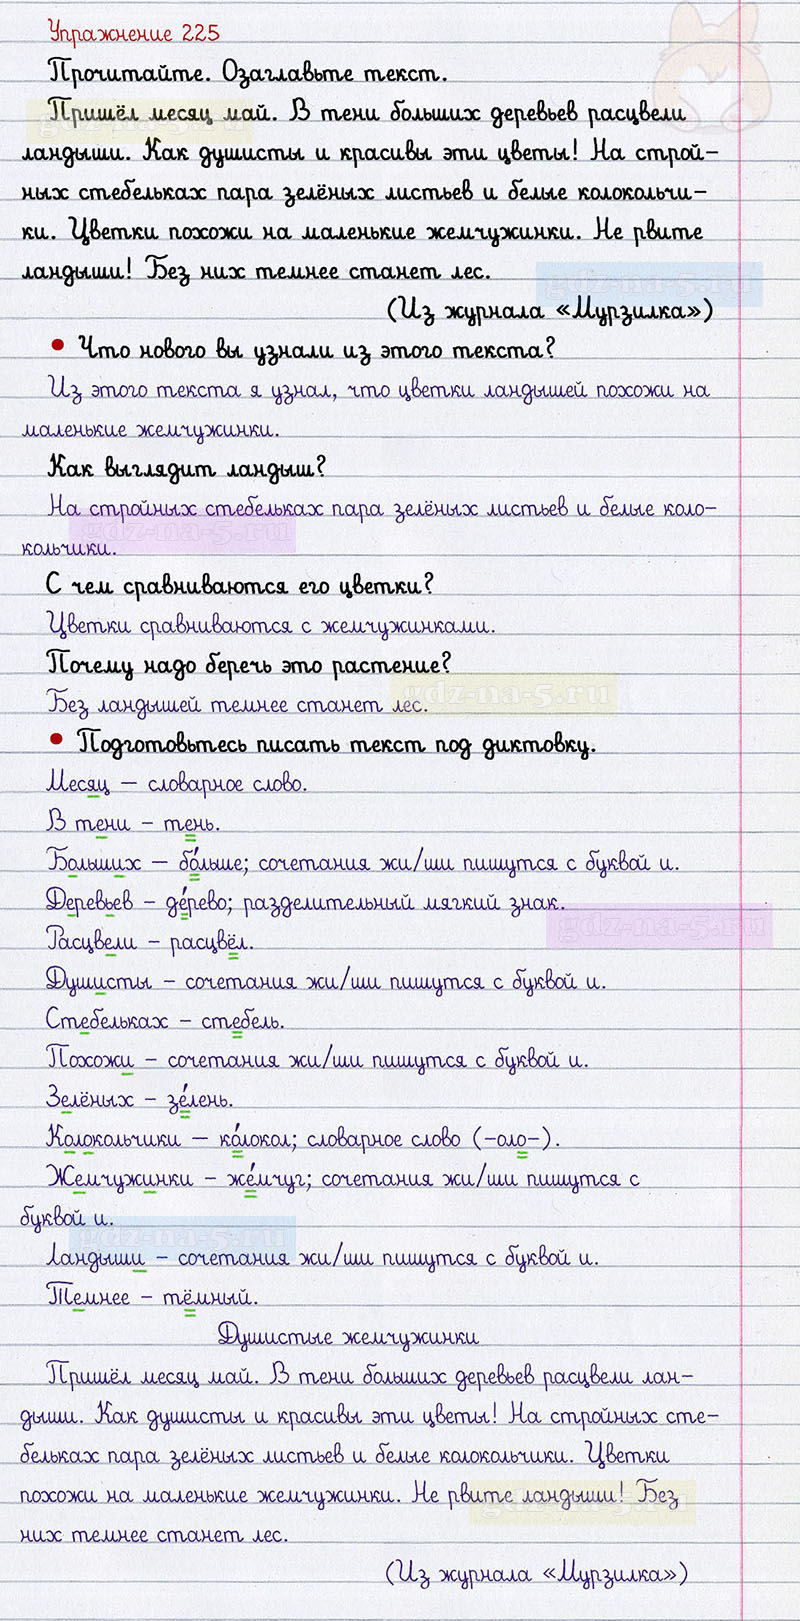 Упражнение 225
Прочитайте. Озаглавьте текст.
Пришёл месяц май. В тени больших деревьев расцвели
ландыши. Как душисты и красивы эти цветы! На строй-
ных стебельках пара зелёных листьев и белые колокольчи-
ки. Цветки похожи на маленькие жемчужинки. Не рвите
ландыши! Без них темнее станет лес.
(Из журнала «Мурзилка»)
• Что нового вы узнали из этого текста?
Из этого текста я узнал, что цветки ландышей похожи на
маленькие жемчужинки.
Как выглядит ландыш?
На стройных стебельках пара зелёных листьев и белые коло-
кольчики.
С чем сравниваются его цветки?
Цветки сравниваются с жемчужинками.
Почему надо беречь это растение?
Без ландышей темнее станет лес.
• Подготовьтесь писать текст под диктовку.
Месяц — словарное слово.
В тени – тень.
Больших — бо́льше; сочетания жи/ши пишутся с буквой и.
Деревьев – де́рево; разделительный мягкий знак.
Расцвели – расцвёл.
Душисты – сочетания жи/ши пишутся с буквой и.
Стебельках – стебель.
Похожи – сочетания жи/ши пишутся с буквой и.
Зелёных – зе́лень.
Колокольчики — ко́локол; словарное слово (-оло-).
Жемчужинки – же́мчуг; сочетания жи/ши пишутся с
буквой и.
Ландыши – сочетания жи/ши пишутся с буквой и.
Темнее – тёмный.
Душистые жемчужинки
Пришёл месяц май. В тени больших деревьев расцвели лан-
дыши. Как душисты и красивы эти цветы! На стройных сте-
бельках пара зелёных листьев и белые колокольчики. Цветки
похожи на маленькие жемчужинки. Не рвите ландыши! Без
них темнее станет лес.
(Из журнала «Мурзилка»)
gdz-na-5.ru
gdz-na-5.ru
gdz-na-5.ru
gdz-na-5.ru
gdz-na-5.ru
gdz-na-5.ru
gdz-na-5.ru